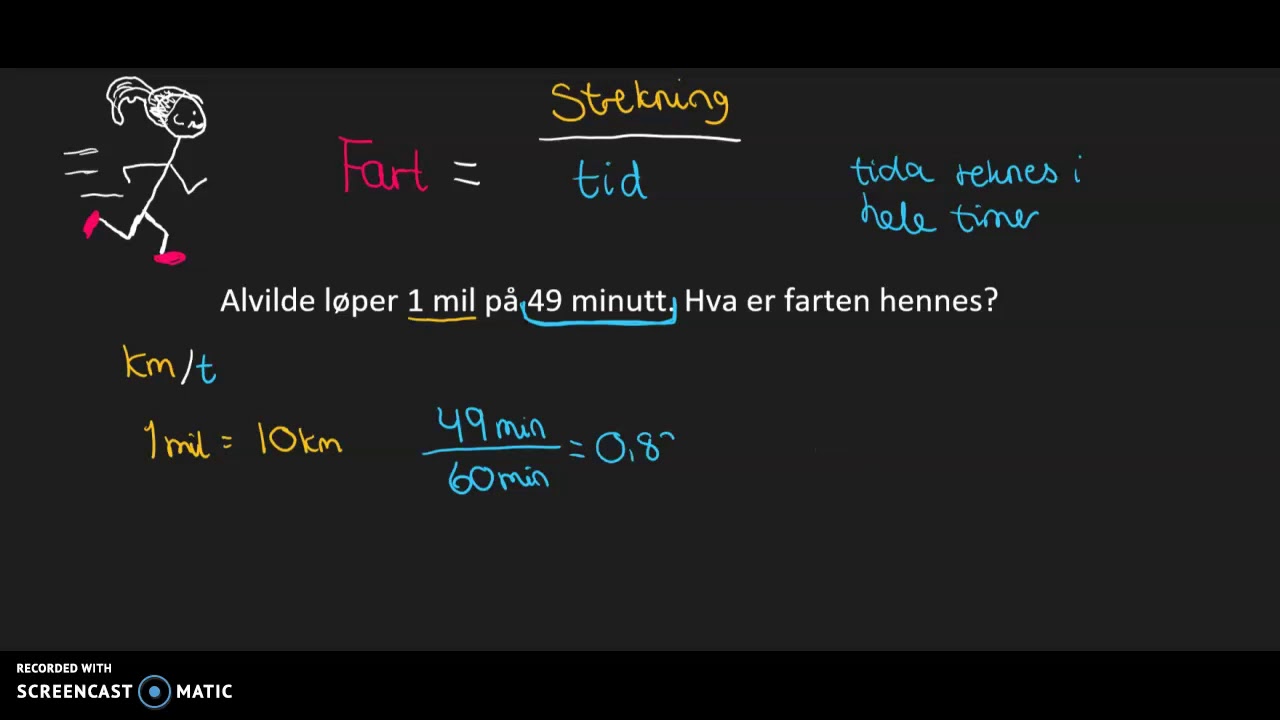 Strekning
Fart = tid
tida reknes i
hele timer
Alvilde løper 1 mil på 49 minutt. Hva er farten hennes?
km/t
1 mil = 10 km
49 min
60 min
= 0,8
RECORDED WITH
SCREENCAST MATIC